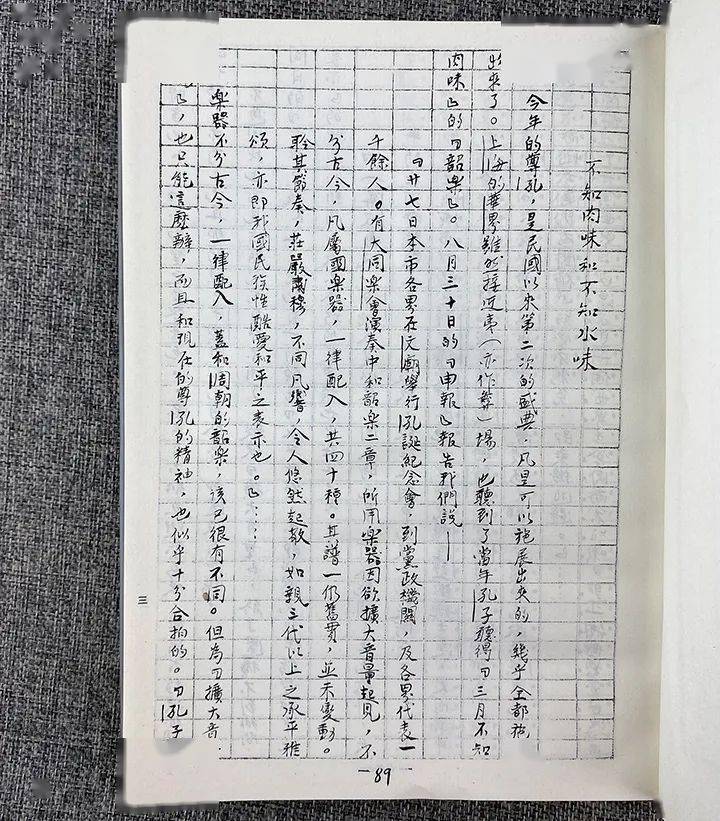 不知肉味和不知水味
今年的尊孔，是民國以來第二次的盛典，凡是可以施展出來的，幾乎全都施
出來了。上海的華界雖然接近夷（亦作彝）場，也聽到了當年孔子聽得「三月不知
肉味」的「韶楽」。八月三十日的「申報」報告我們說——
「廿七日本市各界在文廟舉行孔誕紀念會，到黨政機關，及各界代表一
千餘人。有大同楽會演奏中和韶楽二章，所用楽器因欲擴大音量起見，不
分古今，凡屬國楽器，一律配入，共四十種。其譜一仍舊貫，並未變動。
聆其節奏，莊嚴肅穆，不同凡響，令人悠然起敬，如親三代以上之承平雅
頌，亦即我國民族性酷愛和平之表示也。」……
楽器不分古今，一律配入，蓋和周朝的韶楽，該已很有不同。但為「擴大音
」，也只能這麼辦，而且和現在的尊孔的精神，也似乎十分合拍的。「孔子
三
—89—